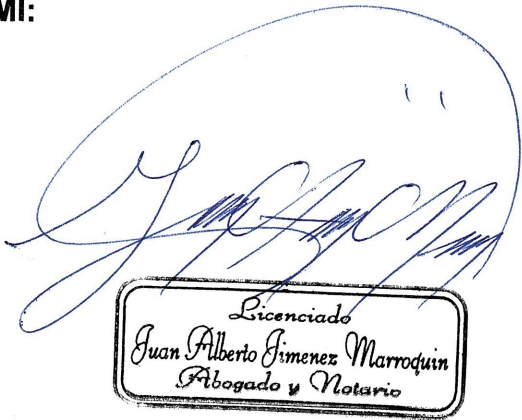 MI:
Licenciado
Juan Alberto Jimenez Marroquin
Abogado y Notario